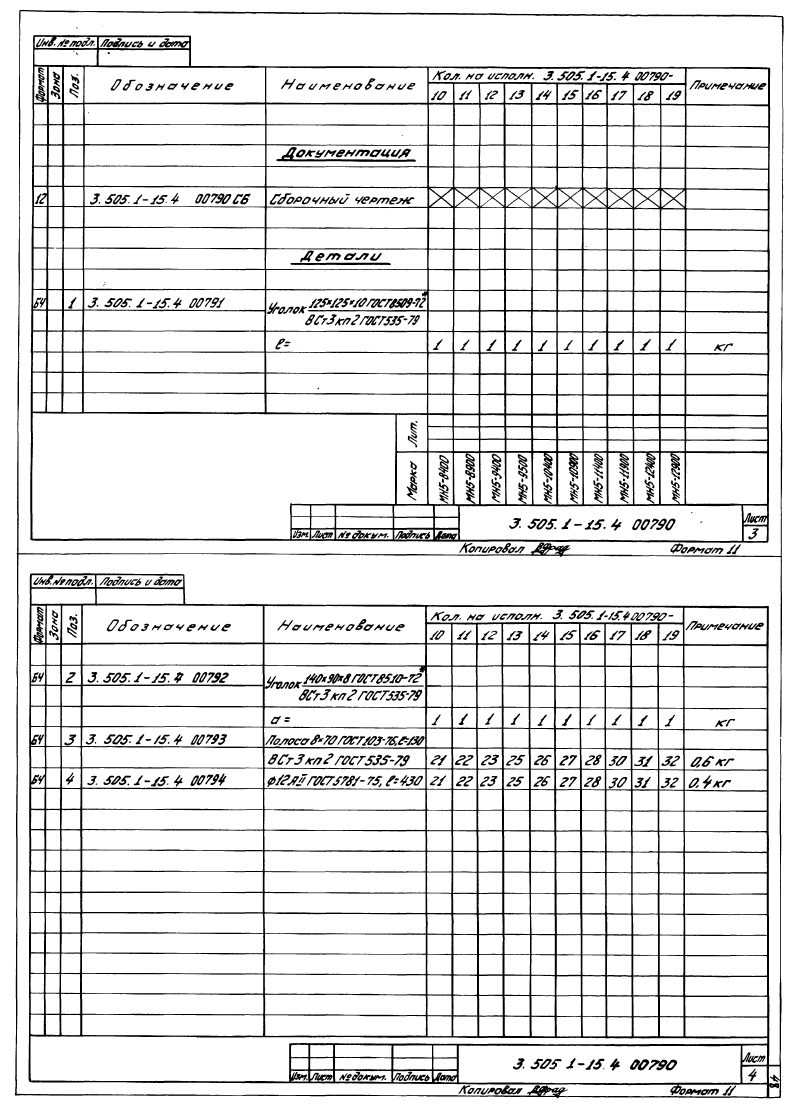 Инв. № подл. Подпись и дата
Формат Зона Поз. Обозначение Наименование Кол. на исполн. 3.505.1-15.4 00790- Примечание
10 11 12 13 14 15 16 17 18 19
Документация
12 3.505.1-15.4 00790 СБ Сборочный чертеж
Детали
БЧ 1 3.505.1-15.4 00791 Уголок 125×125×10 ГОСТ 8509-72*
ВСт3кп2 ГОСТ 535-79
ℓ= 1 1 1 1 1 1 1 1 1 1 кг
Лит.
Марка МН5-8400 МН5-8900 МН5-9400 МН5-9500 МН5-10400 МН5-10900 МН5-11400 МН5-11900 МН5-12400 МН5-12900
3.505.1-15.4 00790 Лист
3
Изм. Лист № докум. Подпись Дата
Копировал Формат 11
Инв. № подл. Подпись и дата
Формат Зона Поз. Обозначение Наименование Кол. на исполн. 3.505.1-15.4 00790- Примечание
10 11 12 13 14 15 16 17 18 19
БЧ 2 3.505.1-15.4 00792 Уголок 140×90×8 ГОСТ 8510-72*
ВСт3кп2 ГОСТ 535-79
а= 1 1 1 1 1 1 1 1 1 1 кг
БЧ 3 3.505.1-15.4 00793 Полоса 8×70 ГОСТ 103-76, ℓ=130
ВСт3кп2 ГОСТ 535-79 21 22 23 25 26 27 28 30 31 32 0,6 кг
БЧ 4 3.505.1-15.4 00794 ф12АII ГОСТ 5781-75, ℓ=430 21 22 23 25 26 27 28 30 31 32 0,4 кг
3.505 1-15.4 00790 Лист
4
Изм. Лист № докум. Подпись Дата
Копировал Формат 11
48